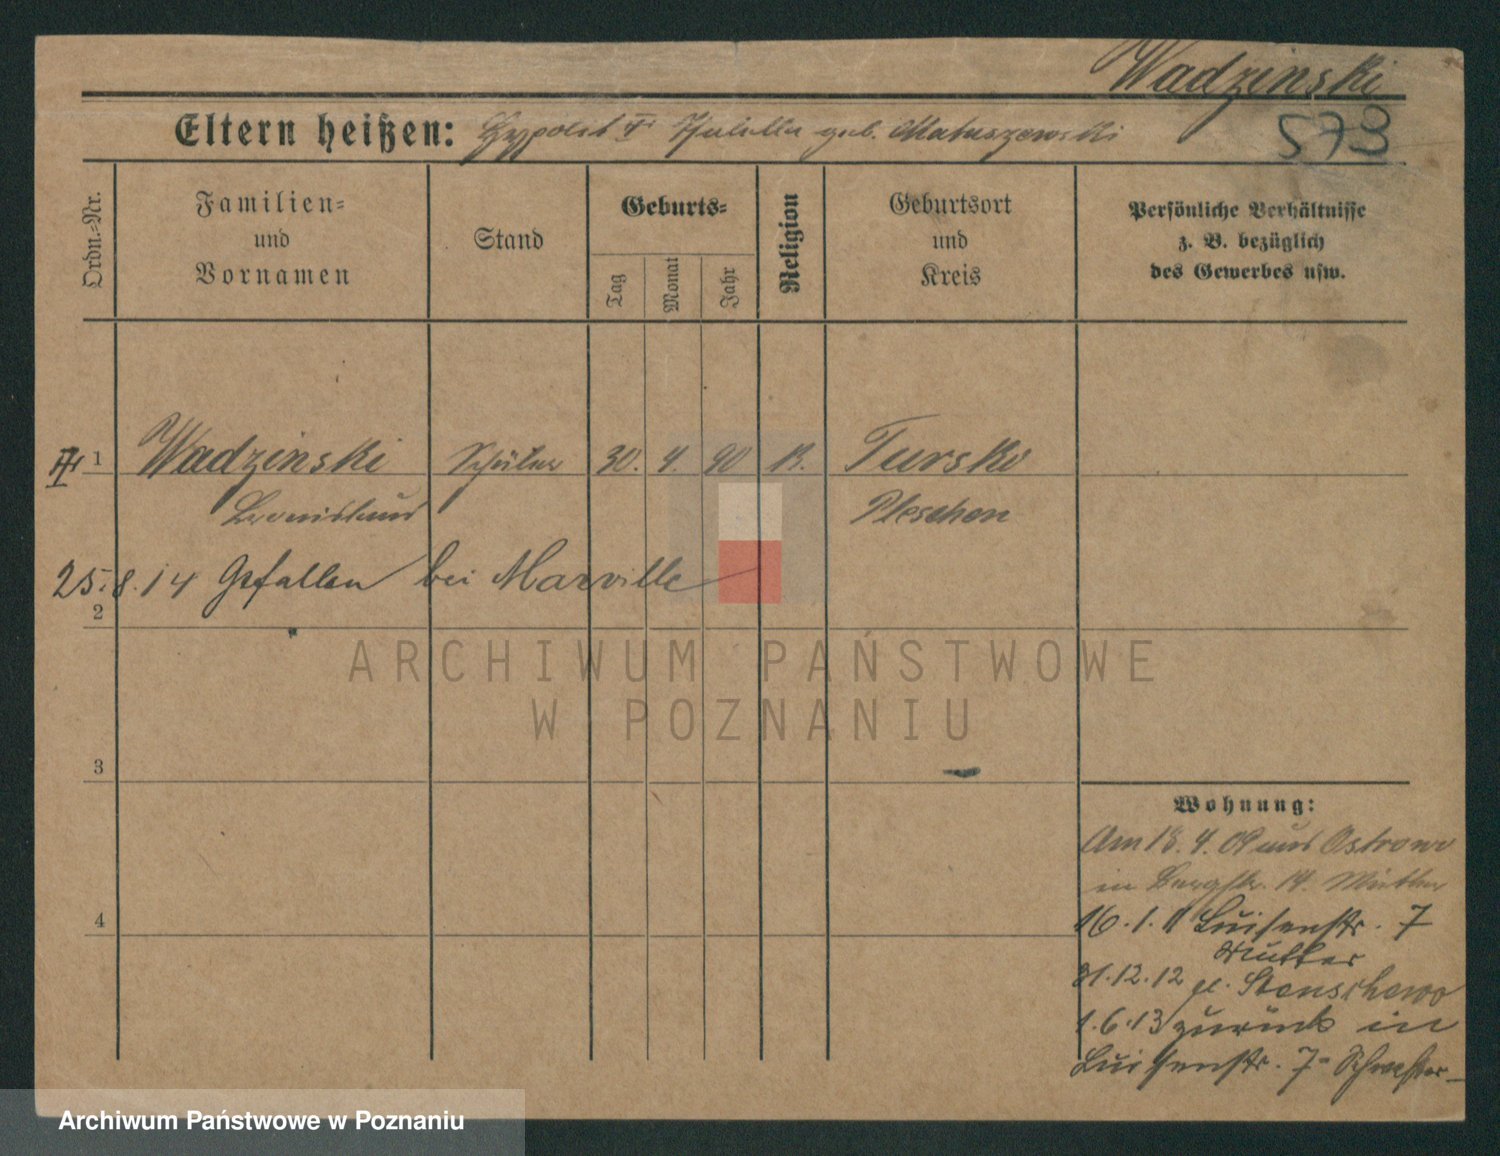 Wadzinski
Eltern heißen: Hypolit geb. Matuszewski
573
Ordn.=Nr.
Familien=
und
Vornamen
Stand
Geburts=
Tag
Monat
Jahr
Religion
Geburtsort
und
Kreis
Persönliche Verhältnisse
z. B. bezüglich
des Gewerbes usw.
1 Wadzinski Schüler 30. 4. 90 Tursko
Bronislaus Pleschen
25.8.14 Gefallen bei Marville
2
3
4
Wohnung:
Am 13. 4. 09 aus Ostrowo
in Bergstr. 14. Mutter
16.1.11 Luisenstr. 7
Mutter
31.12.12
1.6.13 zurück in
Luisenstr. 7 Schwester
ARCHIWUM PAŃSTWOWE
W POZNANIU
Archiwum Państwowe w Poznaniu